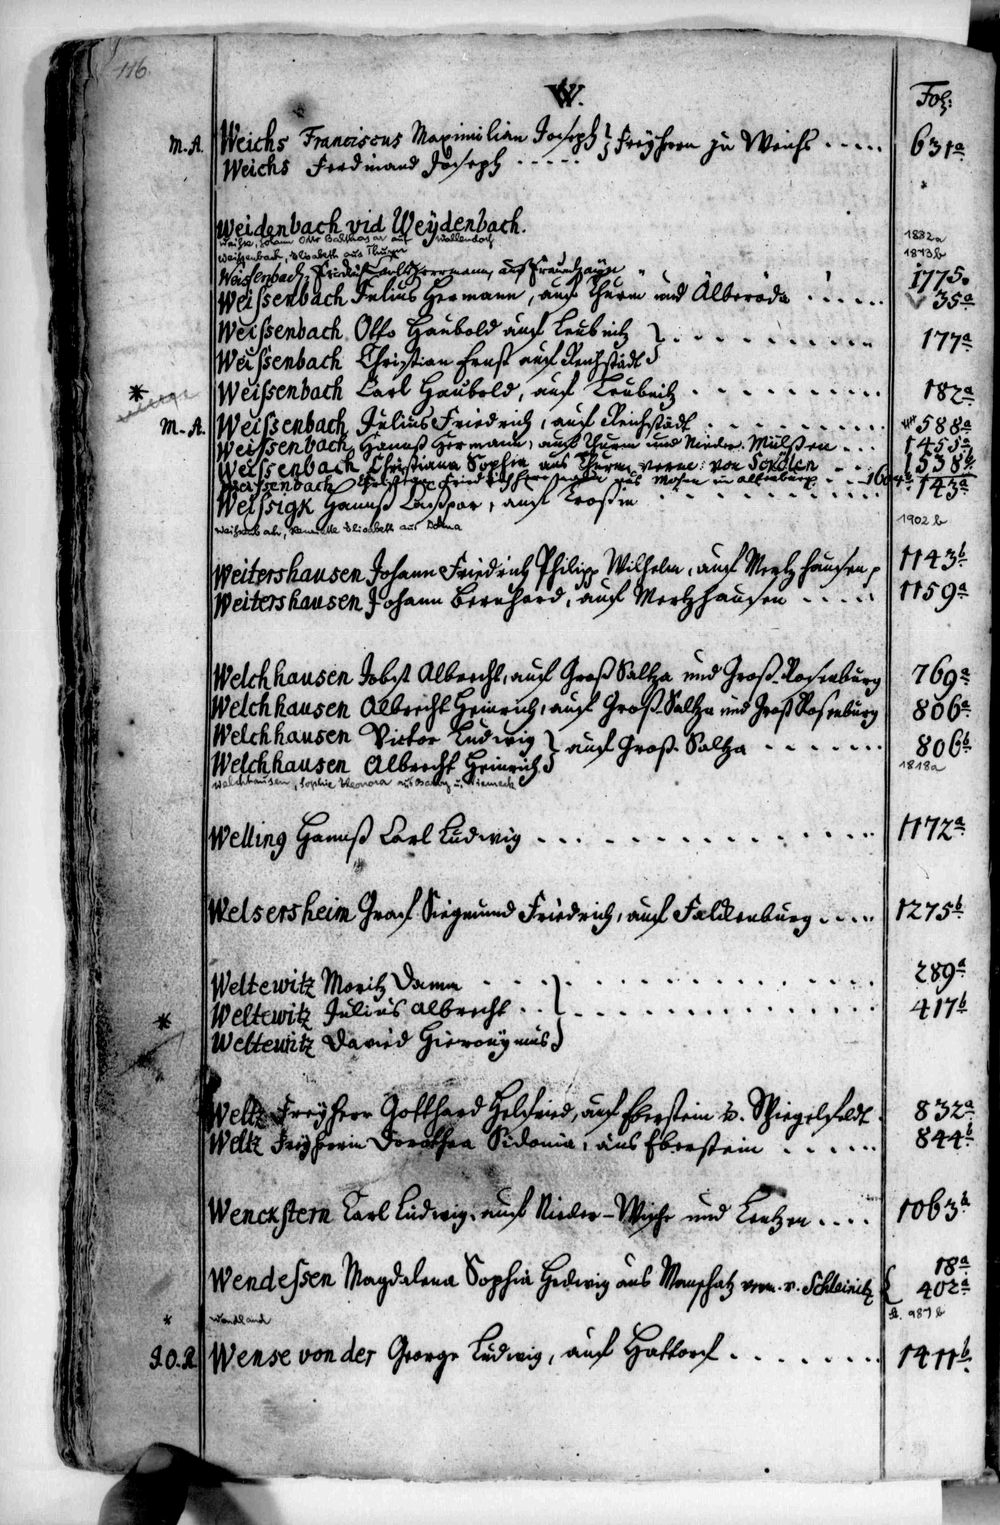 116.
W.
Fol:
M.A. Weichs Franciscus Maximilian Joseph } Freyherrn zu Weichs . . . . . 631a
Weichs Ferdinand Joseph . . . . .
Weidenbach vid Weydenbach.
Weißenbach, Elisabeth aus Thurm 1873b
1882a
Weissenbach, 1775.
Weissenbach Julius Hermann, auf Thurm und Alberoda . . . . . 35a
Weissenbach Otto Haubold auf Leubnitz } . . . . . 177a
Weissenbach Christian Ernst auf Reichstädt
* Weissenbach Carl Haubold, auf Leubnitz . . . . . 182a
M.A. Weissenbach Julius Friedrich, auf Reichstädt . . . . . 588a
Weissenbach Hannß Hermann, auf Thurm und Nieder Mülßen . . . 1455a
Weissenbach Christiana Sophia aus Thurm verm: von Schölen . . . 1538b
Weissenbach 1604b
Weissigk Hannß Caspar, auf Troßin . . . . . 143a
1902b
Weitershausen Johann Friedrich Philipp Wilhelm, auf Mertzhausen 1143b
Weitershausen Johann Bernhard, auf Mertzhausen . . . . . 1159a
Welchhausen Jobst Albrecht, auf Groß Saltza und Groß-Rosenburg 769a
Welchhausen Albrecht Heinrich, auf Groß-Saltza und Groß Rosenburg 806a
Welchhausen Victor Ludwig } auf Groß-Saltza . . . . . 806b
Welchhausen Albrecht Heinrich
Welchhausen, Sophie Eleonora aus Barby u. 1818a
Welling Hannß Carl Ludwig . . . . . 1172a
Welsersheim Graf Siegmund Friedrich, auf Falckenburg . . . . 1275b
Weltewitz Moritz Damm . . . . . 289a
* Weltewitz Julius Albrecht . . } . . . . . 417b
Weltewitz David Hieronymus
Weltz Freyherr Gotthard Helfried, auf Eberstein u. Spiegelfeldt . 832a
Weltz Freyherrin Dorothea Sidonia, aus Eberstein . . . . . 844b
Wenckstern Carl Ludwig, auf Nieder-Wische und Lentzen . . . . 1063a
Wendessen Magdalena Sophia Hedwig aus verm. v. Schleinitz { 18a
402a
* Wendland 987b
J.O.R. Wense von der George Ludwig, auf Hattorf . . . . . 1411b